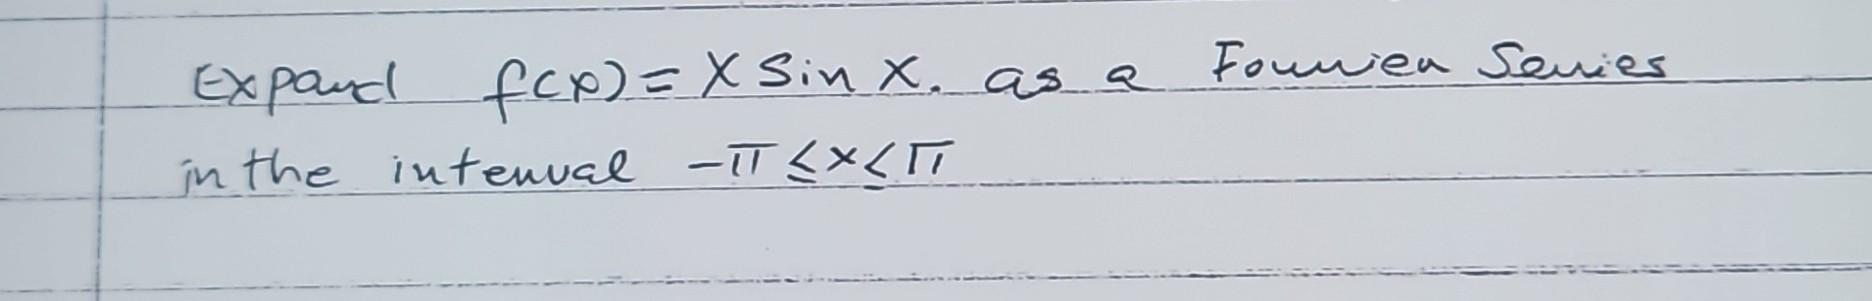 Expand f(x) = x sin x. as a Fourier Series
in the interval -π ≤ x ≤ π